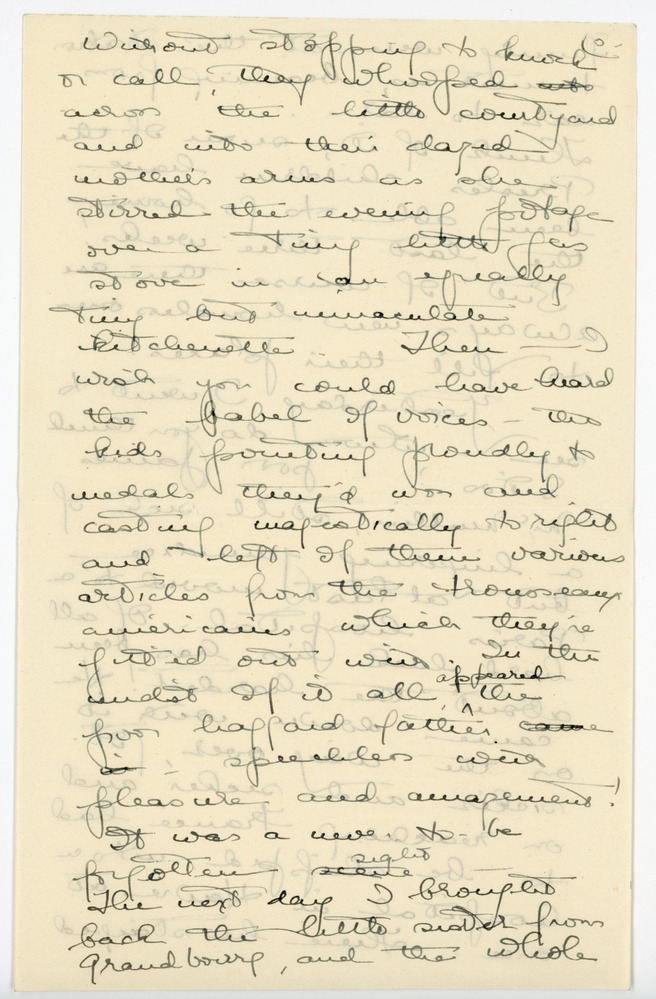 Without stopping to knock
or call, they whooped into
across the little courtyard
and into their dazed
mother's arms as she
stirred the evening potage
over a tiny little gas
stove in an equally
tiny but immaculate
kitchenette. Then — I
wish you could have heard
the babel of voices — the
kids pointing proudly to
medals they'd won and
casting majestically to right
and left of them various
articles from the trousseaux
americains which they're
fitted out with. In the
midst of it all, appeared the
poor haggard father, came
in — speechless with
pleasure and amazement!
It was a never-to-be
forgotten scene sight
The next day I brought
back the little sister from
Grandbourg, and the whole